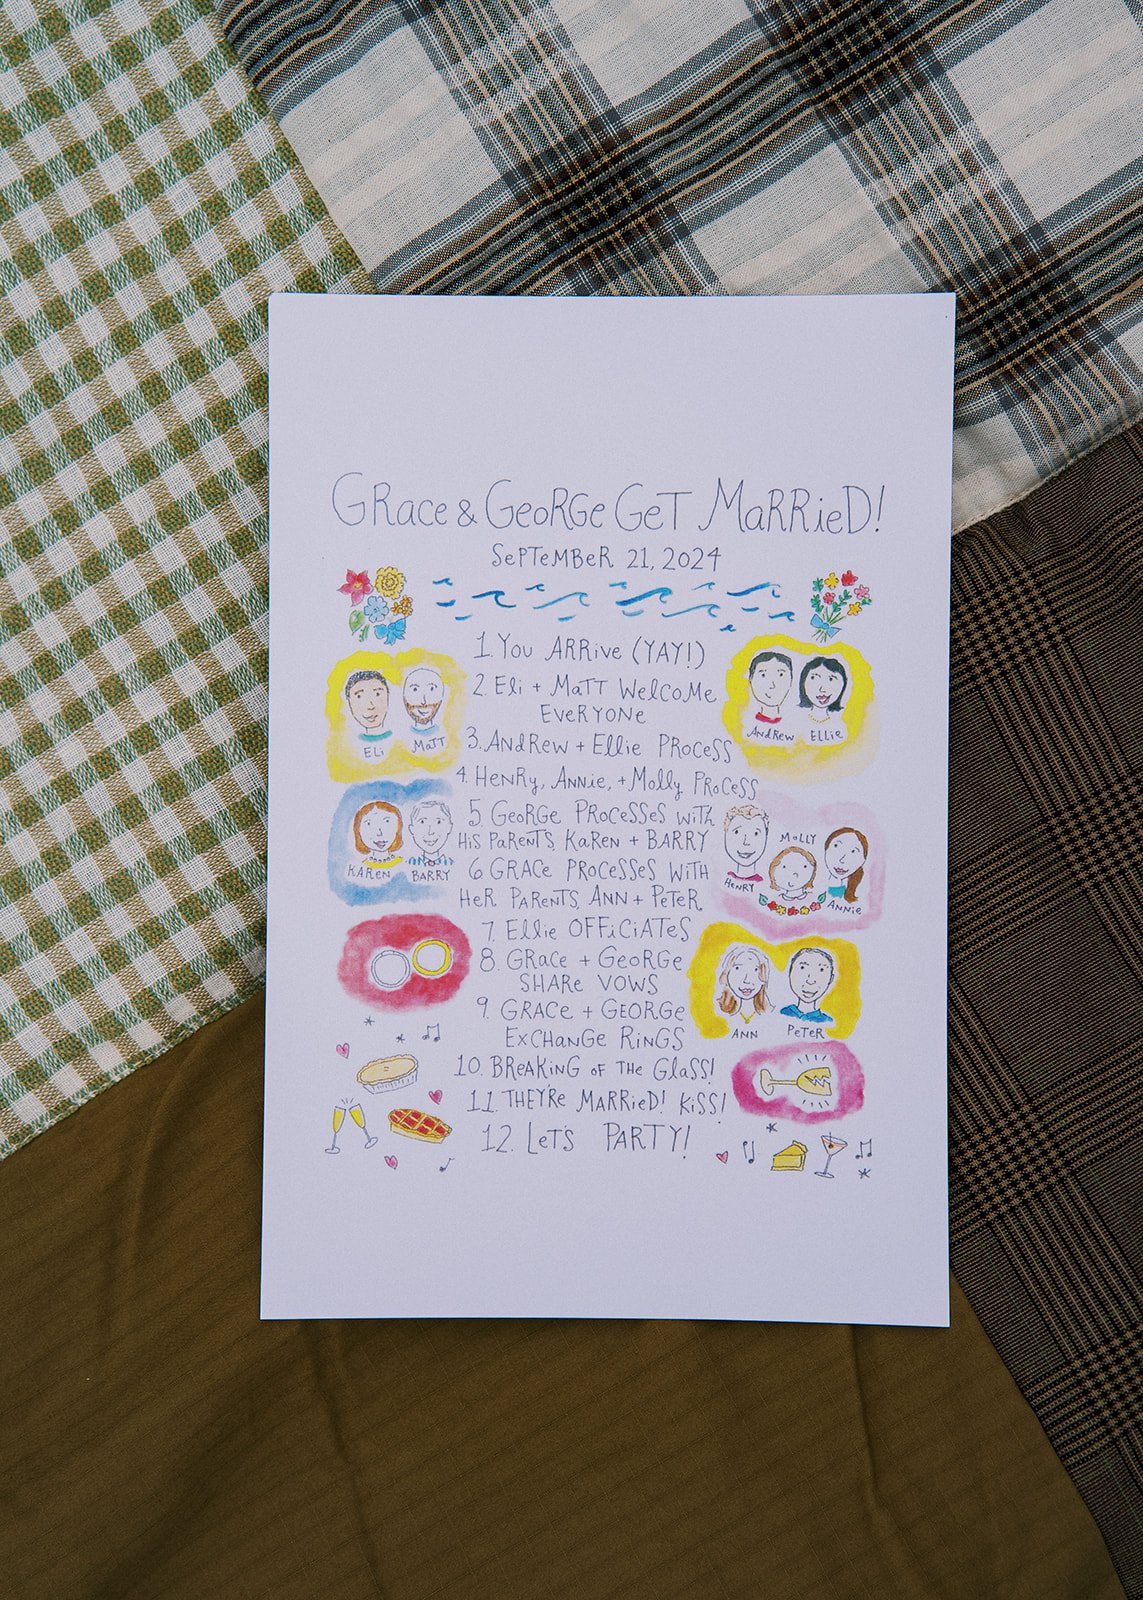 GRACE & GEORGE GET MARRIED!
SEPTEMBER 21, 2024
1. YOU ARRIVE (YAY!)
2. ELI + MATT WELCOME
EVERYONE
3. ANDREW + ELLIE PROCESS
4. HENRY, ANNIE, + MOLLY PROCESS
5. GEORGE PROCESSES WITH
HIS PARENTS, KAREN + BARRY
6. GRACE PROCESSES WITH
HER PARENTS, ANN + PETER
7. ELLIE OFFICIATES
8. GRACE + GEORGE
SHARE VOWS
9. GRACE + GEORGE
EXCHANGE RINGS
10. BREAKING OF THE GLASS!
11. THEY'RE MARRIED! KISS!
12. LET'S PARTY!
ELI
MATT
ANDREW
ELLIE
KAREN
BARRY
MOLLY
HENRY
ANNIE
ANN
PETER